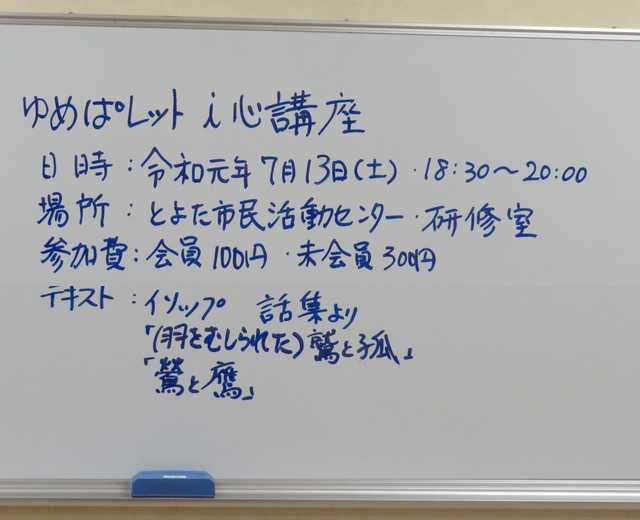 ゆめぱレット i心講座
日時：令和元年7月13日(土)・18:30～20:00
場所：とよた市民活動センター・研修室
参加費：会員100円・未会員300円
テキスト：イソップ 話集より
「(羽をむしられた)鷲と狐」
「鶯と鷹」